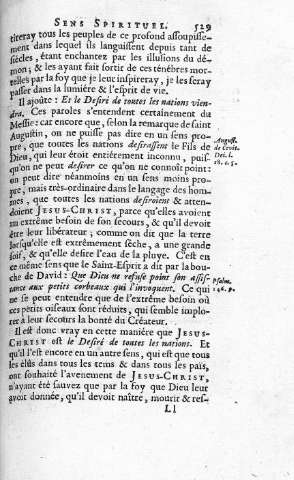 SENS SPIRITUEL. 529
tireray tous les peuples de ce profond assoupisse-
ment dans lequel ils languissent depuis tant de
siécles, étant enchantez par les illusions du dé-
mon; & les ayant fait sortir de ces ténébres mor-
telles par la foy que je leur inspireray, je les feray
passer dans la lumiére & l'esprit de vie.
Il ajoûte: Et le Desiré de toutes les nations vien-
dra. Ces paroles s'entendent certainement du
Messie: car encore que, selon la remarque de saint
Augustin, on ne puisse pas dire en un sens pro-
pre, que toutes les nations desirassent le Fils de
Dieu, qui leur étoit entiérement inconnu, puis-
qu'on ne peut desirer ce qu'on ne connoît point:
on peut dire néanmoins en un sens moins pro-
pre, mais tres-ordinaire dans le langage des hom-
mes, que toutes les nations desiroient & atten-
doient JESUS-CHRIST, parce qu'elles avoient
un extrême besoin de son secours, & qu'il devoit
être leur libérateur; comme on dit que la terre
lorsqu'elle est extrêmement séche, a une grande
soif, & qu'elle desire l'eau de la pluye. C'est en
ce même sens que le Saint-Esprit a dit par la bou-
che de David: Que Dieu ne refuse point son assis-
tance aux petits corbeaux qui l'invoquent. Ce qui
ne se peut entendre que de l'extrême besoin où
ces petits oiseaux sont réduits, qui semble implo-
rer à leur secours la bonté du Créateur.
Il est donc vray en cette maniére que JESUS-
CHRIST est le Desiré de toutes les nations. Et
qu'il l'est encore en un autre sens, qui est que tous
les élûs dans tous les tems & dans tous les païs,
ont souhaité l'avenement de JESUS-CHRIST,
n'ayant été sauvez que par la foy que Dieu leur
avoit donnée, qu'il devoit naître, mourir & res-
Ll
August.
de Civit.
Dei. l.
18. c.
Psalm.
146. 9.